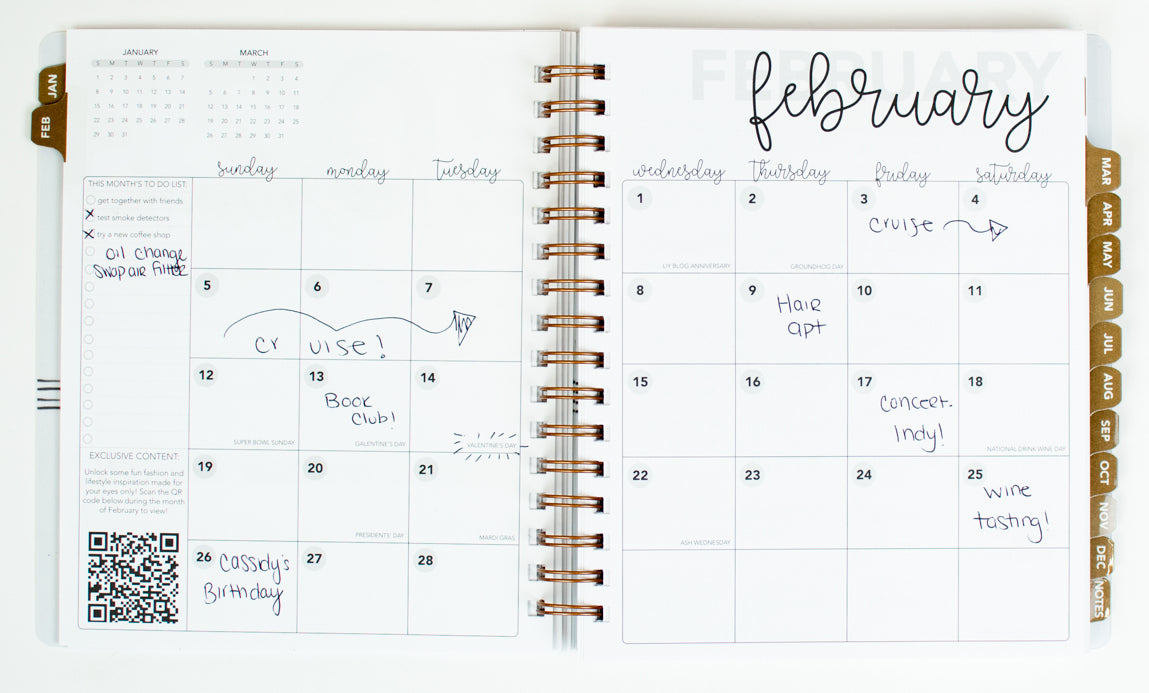 JANUARY
S M T W T F S
1 2 3 4 5 6 7
8 9 10 11 12 13 14
15 16 17 18 19 20 21
22 23 24 25 26 27 28
29 30 31
MARCH
S M T W T F S
1 2 3 4
5 6 7 8 9 10 11
12 13 14 15 16 17 18
19 20 21 22 23 24 25
26 27 28 29 30 31
JAN
FEB
FEBRUARY
february
sunday monday tuesday wednesday thursday friday saturday
THIS MONTH'S TO DO LIST:
get together with friends
test smoke detectors
try a new coffee shop
oil change
swap air filter
EXCLUSIVE CONTENT:
Unlock some fun fashion and
lifestyle inspiration made for
your eyes only! Scan the QR
code below during the month
of February to view!
1 2 3 4
cruise
LIY BLOG ANNIVERSARY GROUNDHOG DAY
5 6 7 8 9 10 11
cruise!
Hair
apt
12 13 14 15 16 17 18
Book
Club!
Concert.
Indy!
SUPER BOWL SUNDAY GALENTINE'S DAY VALENTINE'S DAY NATIONAL DRINK WINE DAY
19 20 21 22 23 24 25
wine
tasting!
PRESIDENTS' DAY MARDI GRAS ASH WEDNESDAY
26 27 28
Cassidy's
Birthday
MAR
APR
MAY
JUN
JUL
AUG
SEP
OCT
NOV
DEC
NOTES